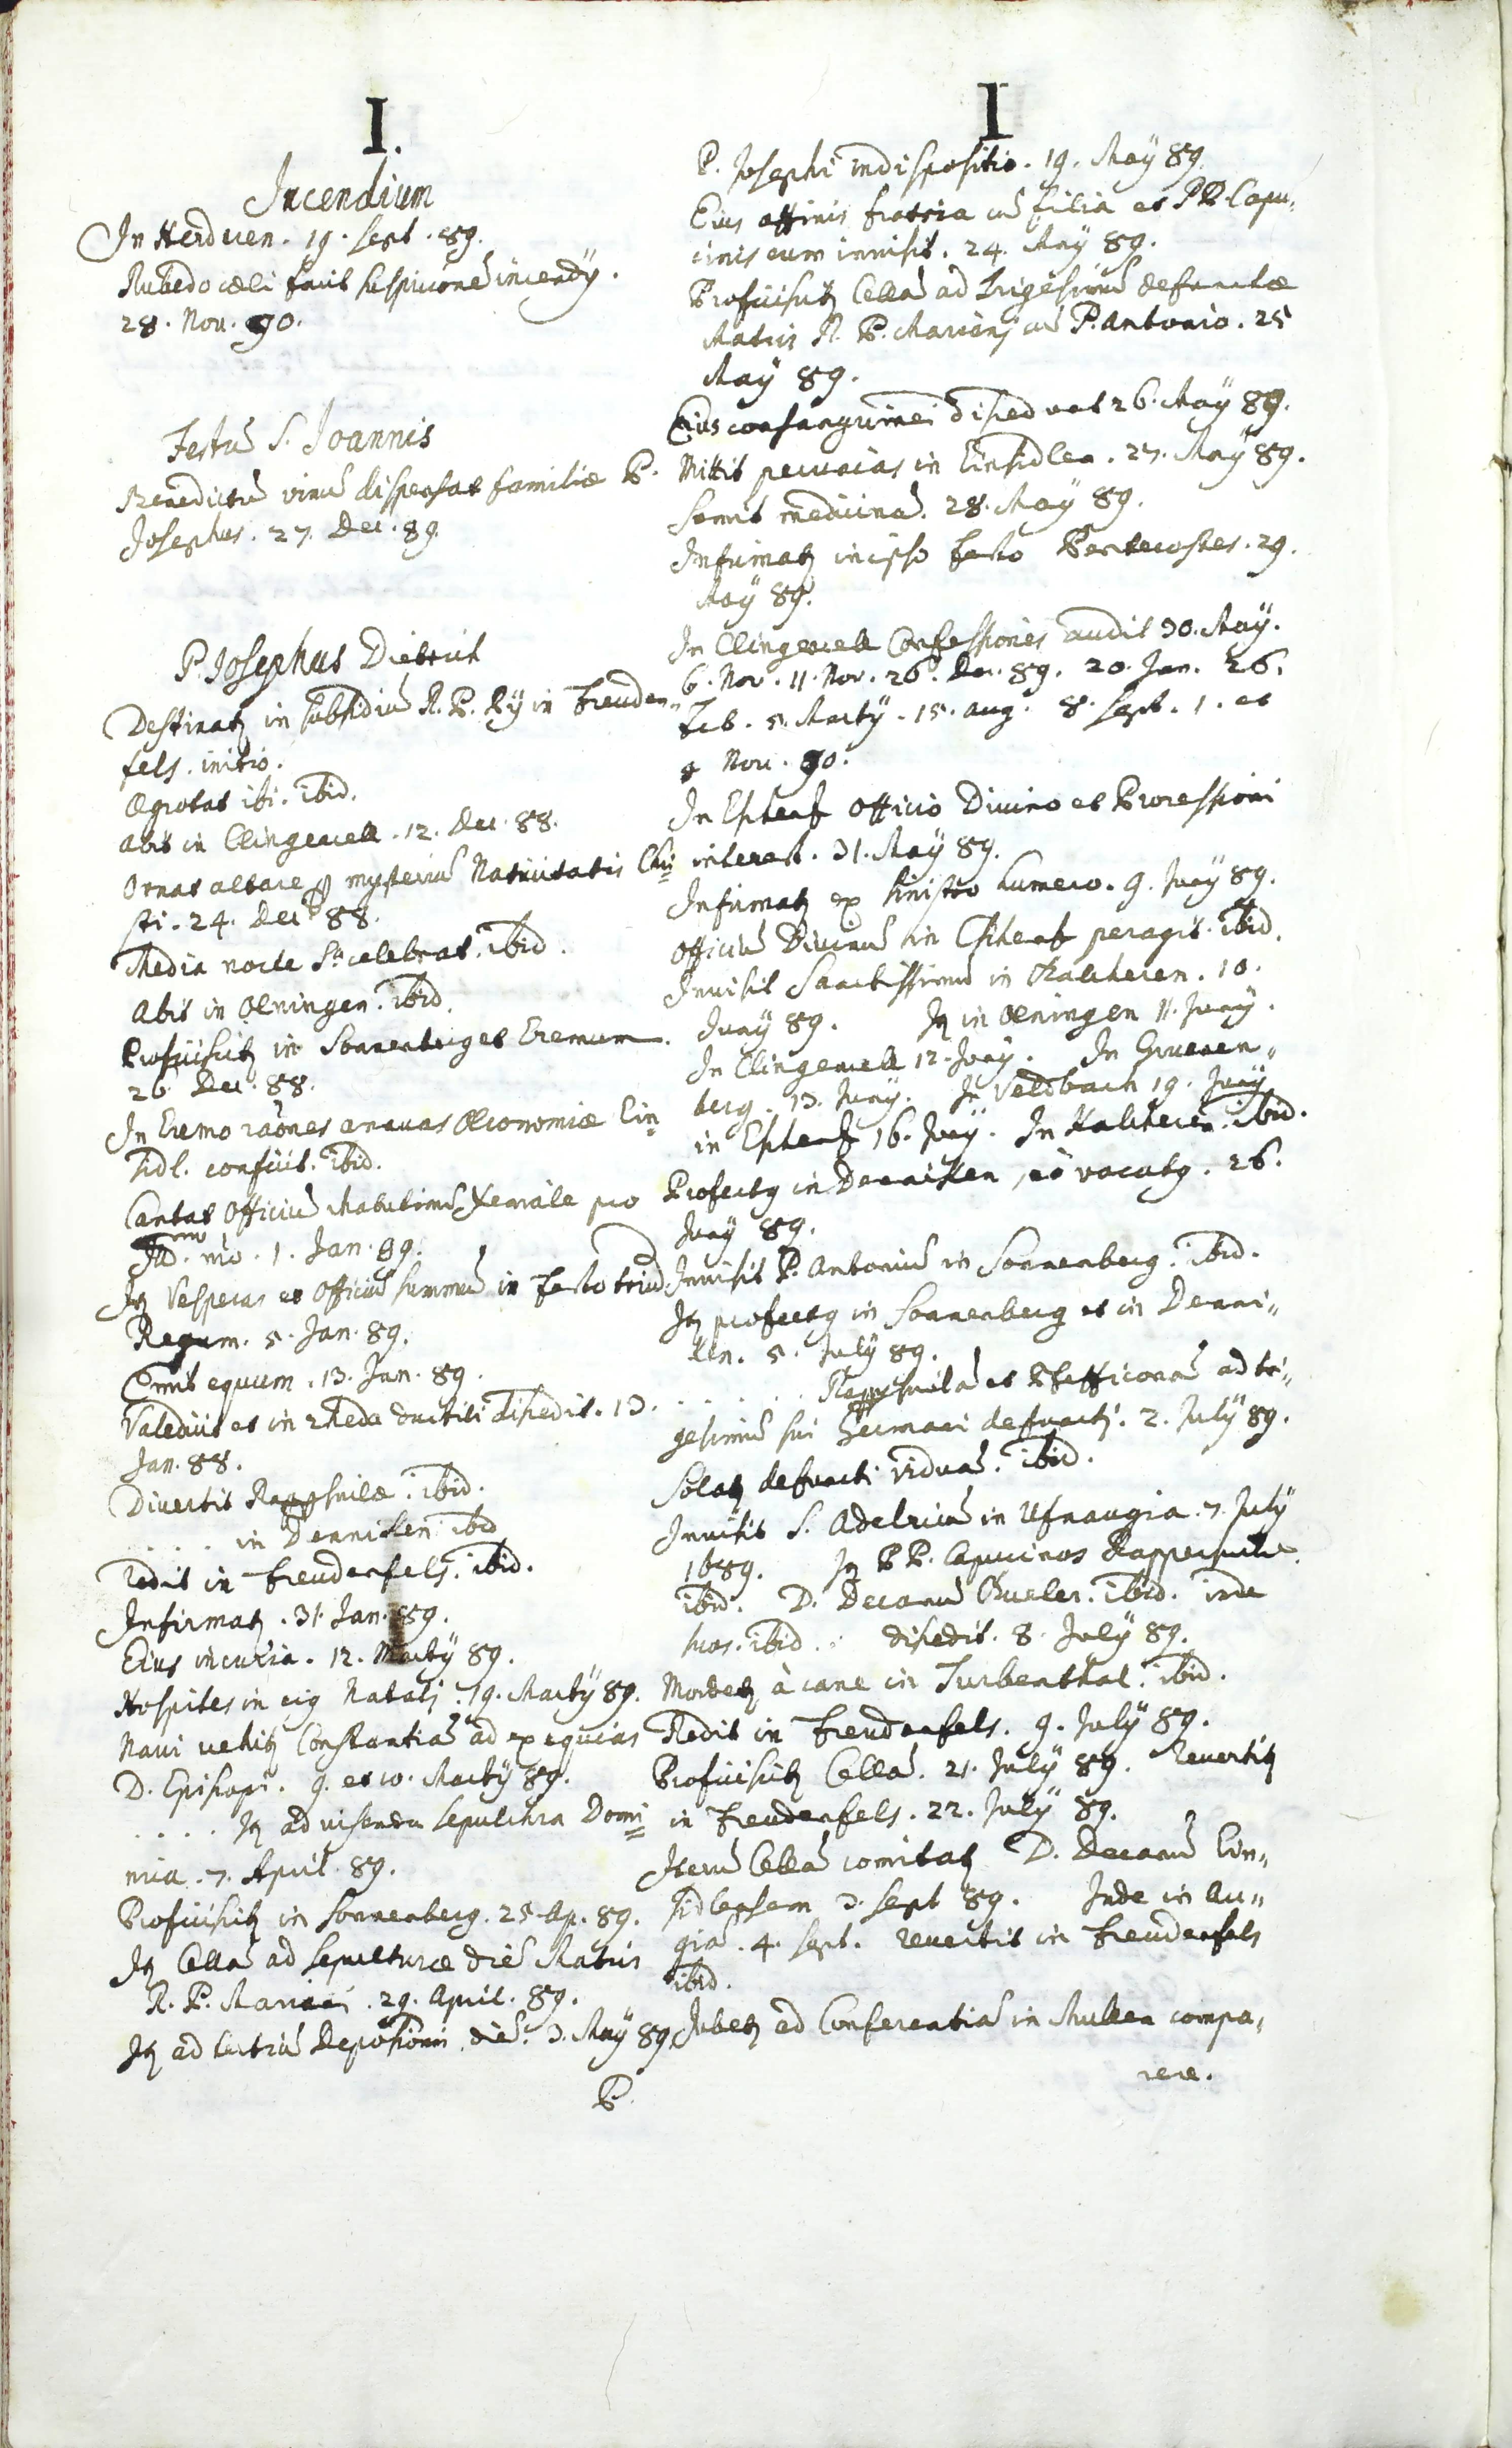 I.
Incendium
In Herderen. 19. Sept. 89.
Rubedo cæli facit suspicionē incendÿ.
28. Nov. 90.
Festū S. Joannis
Benedictū vinū dispensat familiæ P.
Josephus. 27. Dec. 89.
P. Josephus Dietrich
Destinatꝫ in subsidiū R. P. in Freuden„
fels. initio.
Ægrotat ibi. ibid.
Abit in Clingenzell. 12. Dec. 88.
Ornat altare mysteriū Nativitatis Chri„
sti. 24. Dec. 88.
Media nocte celebrat. ibid.
Abit in Oeningen. ibid.
Proficiscitꝫ in Sonnenberg et Eremum.
26. Dec. 88.
In Eremo raõnes annuas Œconomiæ Ein„
sidl. conficit. ibid.
Cantat Officiū Matutinū pro
1. Jan. 89.
Itꝫ Vesperas et Officiū summū in Festo triū
Regum. 5. Jan. 89.
Emit equum. 13. Jan. 89.
Valedicit et in rheda ductili discedit. 13.
Jan. 88.
Divertit Rappsuilæ. ibid.
. . . . in Denniken ibid
Redit in Freudenfels. ibid.
Infirmatꝫ. 31. Jan. 89.
Eius incuria. 12. Martÿ 89.
Hospites in eiꝫ Natali. 19. Martÿ 89.
Navi vehitꝫ Constantiā ad exequias
D. Episcopi. 9. et 10. Martÿ 89.
. . . . Itꝫ ad visenda sepulchra Domi„
nica. 7. April. 89.
Proficiscitꝫ in Sonnenberg. 25. Ap. 89.
Itꝫ Cellā ad sepulturæ diē Matris
R. P. Mariani. 29. April. 89.
Itꝫ ad tertiū Depositionis diē. 3. Maÿ 89.
P.
I
P. Josephi indispositio. 19. Maÿ 89.
Eius affinis fratria cū filia et PP. Capu„
cinis eum invisit. 24. Maÿ 89.
Proficiscitꝫ Cellā ad Trigesimū defunctæ
Matris R. P. Marianj cū P. Antonio. 25
Maÿ 89.
Eius consanguinei discedunt 26. Maÿ 89.
Mittit pecunias in Einsidlen. 27. Maÿ 89.
Sumit medicinā. 28. Maÿ 89.
Infirmatꝫ in ipso festo Pentecostes. 29.
Maÿ 89.
In Clingenzell Confessiones audit 30. Maÿ.
6. Nov. 11. Nov. 26. Dec. 89. 20. Jan. 26.
Feb. 5. Martÿ. 15. Aug. 8. Sept. 1. et
Nov. 90.
In Eschenz Officio Divino et Processioni
interest. 31. Maÿ 89.
Infirmatꝫ ex sinistro humero. 9. Junÿ 89.
Officiū Divinū in Eschenz peragit. ibid.
Invisit Sanctissimū in Kalcheren. 10.
Junÿ 89. Itꝫ in Oeningen 11. Junÿ.
In Clingenzell 12. Junÿ. In Gruenen„
berg. 13. Junÿ. In Veldbach 19. Junÿ
in Eschenz 16. Junÿ. In Kalcheren. ibid.
Profectꝫ in Denniken, eò vocatꝫ. 26.
Junÿ 89.
Invisit P. Antoniū in Sonnenberg. ibid.
Itꝫ profectꝫ in Sonnenberg et in Denni„
ken. 5. Julÿ 89.
. . . . . . Rappsuilā et Pfefficonā ad tri„
gesimū sui Germani defuncti. 2. Julÿ 89.
Solatꝫ defuncti viduā. ibid.
Invisit S. Adelricū in Ufnaugia. 7. Julÿ
1689. Itꝫ PP. Capucinos Rappersuilæ.
ibid. D. Decanū ibid. inde
suos. ibid. discedit. 8. Julÿ 89.
Mordetꝫ à cane in Turbenthal. ibid.
Redit in Freudenfels. 9. Julÿ 89.
Proficiscitꝫ Cellā. 21. Julÿ 89. Revertitꝫ
in Freudenfels. 22. Julÿ 89.
Iterū Cellā comitatꝫ D. Decanū Ein„
sidlensem 3. Sept 89. Inde in Au„
giā. 4. Sept. revertit in Freudenfels
ibid.
Jubetꝫ ad Conferentiā in Mullen compa„
rere.